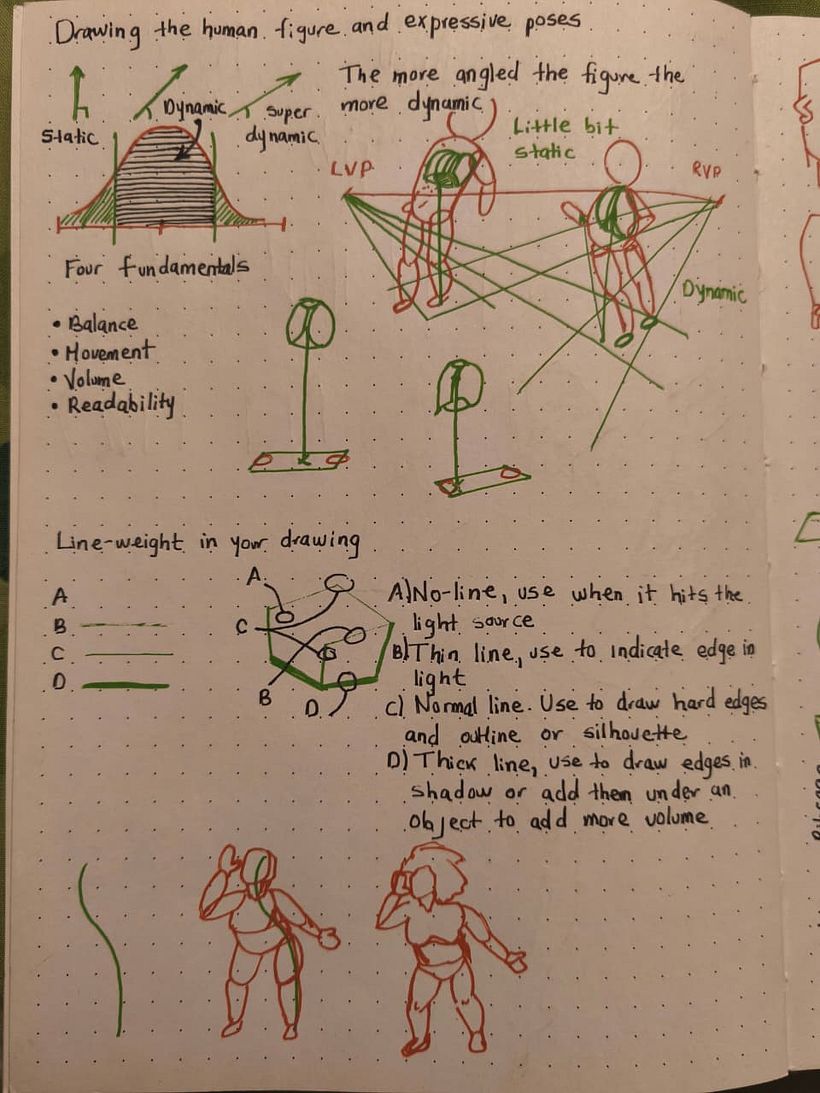 Drawing the human figure and expressive poses
The more angled the figure the
more dynamic
Static
Dynamic
Super
dynamic
Little bit
static
LVP
RVP
Dynamic
Four fundamentals
• Balance
• Movement
• Volume
• Readability
Line-weight in your drawing
A
B
C
D
A
C
B
D
A) No-line, use when it hits the
light source
B) Thin line, use to indicate edge in
light
C) Normal line. Use to draw hard edges
and outline or silhouette
D) Thick line, use to draw edges in
shadow or add them under an
object to add more volume